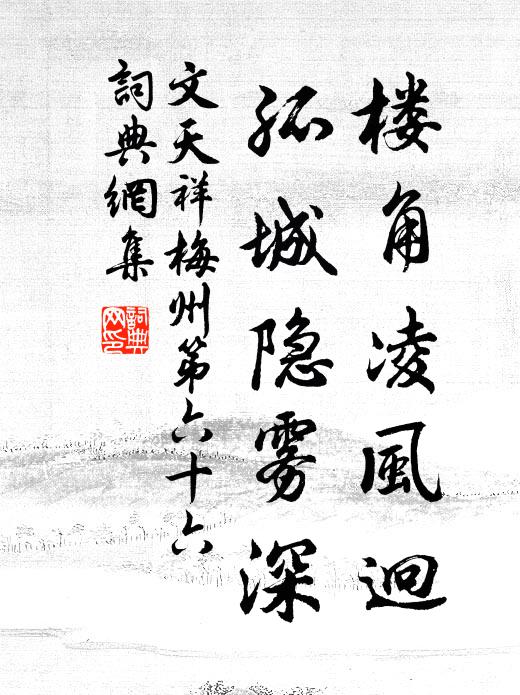 楼角凌風迥
孤城隐雾深
文天祥梅州第六十六
詞典網集
詞典网印